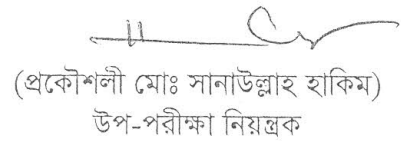 (প্রকৌশলী মোঃ সানাউল্লাহ হাকিম)
উপ-পরীক্ষা নিয়ন্ত্রক